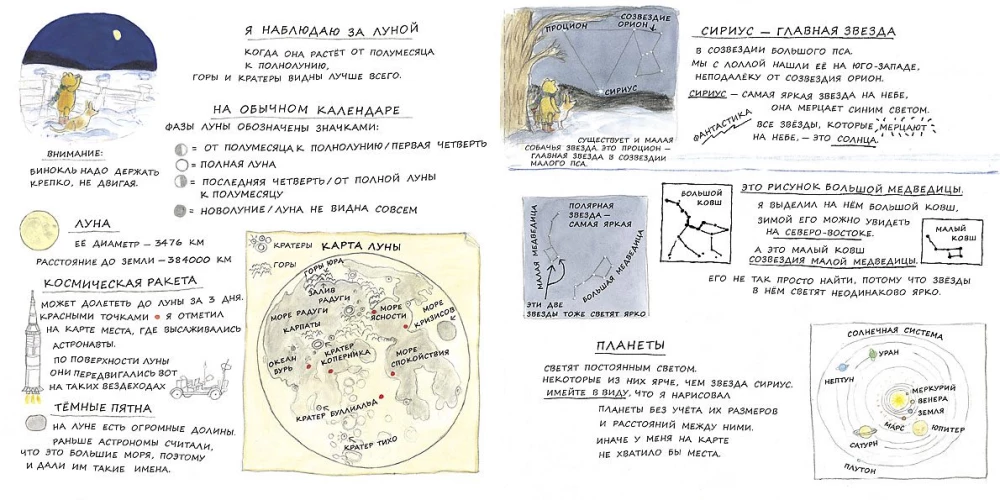 Я НАБЛЮДАЮ ЗА ЛУНОЙ
КОГДА ОНА РАСТЁТ ОТ ПОЛУМЕСЯЦА
К ПОЛНОЛУНИЮ,
ГОРЫ И КРАТЕРЫ ВИДНЫ ЛУЧШЕ ВСЕГО.
НА ОБЫЧНОМ КАЛЕНДАРЕ
ФАЗЫ ЛУНЫ ОБОЗНАЧЕНЫ ЗНАЧКАМИ:
= ОТ ПОЛУМЕСЯЦА К ПОЛНОЛУНИЮ/ПЕРВАЯ ЧЕТВЕРТЬ
= ПОЛНАЯ ЛУНА
= ПОСЛЕДНЯЯ ЧЕТВЕРТЬ/ОТ ПОЛНОЙ ЛУНЫ
К ПОЛУМЕСЯЦУ
= НОВОЛУНИЕ/ЛУНА НЕ ВИДНА СОВСЕМ
ВНИМАНИЕ:
БИНОКЛЬ НАДО ДЕРЖАТЬ
КРЕПКО, НЕ ДВИГАЯ.
ЛУНА
ЕЁ ДИАМЕТР – 3476 КМ
РАССТОЯНИЕ ДО ЗЕМЛИ – 384000 КМ
КОСМИЧЕСКАЯ РАКЕТА
МОЖЕТ ДОЛЕТЕТЬ ДО ЛУНЫ ЗА 3 ДНЯ.
КРАСНЫМИ ТОЧКАМИ Я ОТМЕТИЛ
НА КАРТЕ МЕСТА, ГДЕ ВЫСАЖИВАЛИСЬ
АСТРОНАВТЫ.
ПО ПОВЕРХНОСТИ ЛУНЫ
ОНИ ПЕРЕДВИГАЛИСЬ ВОТ
НА ТАКИХ ВЕЗДЕХОДАХ
ТЁМНЫЕ ПЯТНА
НА ЛУНЕ ЕСТЬ ОГРОМНЫЕ ДОЛИНЫ.
РАНЬШЕ АСТРОНОМЫ СЧИТАЛИ,
ЧТО ЭТО БОЛЬШИЕ МОРЯ, ПОЭТОМУ
И ДАЛИ ИМ ТАКИЕ ИМЕНА.
КРАТЕРЫ
КАРТА ЛУНЫ
ГОРЫ
ГОРЫ ЮРА
ЗАЛИВ
РАДУГИ
МОРЕ
РАДУГИ
МОРЕ
ЯСНОСТИ
МОРЕ
КРИЗИСОВ
КАРПАТЫ
ОКЕАН
БУРЬ
КРАТЕР
КОПЕРНИКА
МОРЕ
СПОКОЙСТВИЯ
КРАТЕР БУЛЛИАЛЬД
КРАТЕР ТИХО
ПРОЦИОН
СОЗВЕЗДИЕ
ОРИОН
СИРИУС
СУЩЕСТВУЕТ И МАЛАЯ
СОБАЧЬЯ ЗВЕЗДА. ЭТО ПРОЦИОН –
ГЛАВНАЯ ЗВЕЗДА В СОЗВЕЗДИИ
МАЛОГО ПСА.
СИРИУС – ГЛАВНАЯ ЗВЕЗДА
В СОЗВЕЗДИИ БОЛЬШОГО ПСА.
МЫ С ЛОЛЛОЙ НАШЛИ ЕЁ НА ЮГО-ЗАПАДЕ,
НЕПОДАЛЁКУ ОТ СОЗВЕЗДИЯ ОРИОН.
СИРИУС – САМАЯ ЯРКАЯ ЗВЕЗДА НА НЕБЕ,
ОНА МЕРЦАЕТ СИНИМ СВЕТОМ.
ФАНТАСТИКА
ВСЕ ЗВЁЗДЫ, КОТОРЫЕ МЕРЦАЮТ
НА НЕБЕ, – ЭТО СОЛНЦА.
МАЛАЯ МЕДВЕДИЦА
ПОЛЯРНАЯ
ЗВЕЗДА –
САМАЯ ЯРКАЯ
БОЛЬШАЯ МЕДВЕДИЦА
ЭТИ ДВЕ
ЗВЕЗДЫ ТОЖЕ СВЕТЯТ ЯРКО
БОЛЬШОЙ
КОВШ
ЭТО РИСУНОК БОЛЬШОЙ МЕДВЕДИЦЫ.
Я ВЫДЕЛИЛ НА НЁМ БОЛЬШОЙ КОВШ,
ЗИМОЙ ЕГО МОЖНО УВИДЕТЬ
НА СЕВЕРО-ВОСТОКЕ.
А ЭТО МАЛЫЙ КОВШ
СОЗВЕЗДИЯ МАЛОЙ МЕДВЕДИЦЫ.
МАЛЫЙ
КОВШ
ЕГО НЕ ТАК ПРОСТО НАЙТИ, ПОТОМУ ЧТО ЗВЕЗДЫ
В НЁМ СВЕТЯТ НЕОДИНАКОВО ЯРКО.
ПЛАНЕТЫ
СВЕТЯТ ПОСТОЯННЫМ СВЕТОМ.
НЕКОТОРЫЕ ИЗ НИХ ЯРЧЕ, ЧЕМ ЗВЕЗДА СИРИУС.
ИМЕЙТЕ В ВИДУ, ЧТО Я НАРИСОВАЛ
ПЛАНЕТЫ БЕЗ УЧЁТА ИХ РАЗМЕРОВ
И РАССТОЯНИЙ МЕЖДУ НИМИ.
ИНАЧЕ У МЕНЯ НА КАРТЕ
НЕ ХВАТИЛО БЫ МЕСТА.
СОЛНЕЧНАЯ СИСТЕМА
УРАН
НЕПТУН
МЕРКУРИЙ
ВЕНЕРА
ЗЕМЛЯ
МАРС
ЮПИТЕР
САТУРН
ПЛУТОН